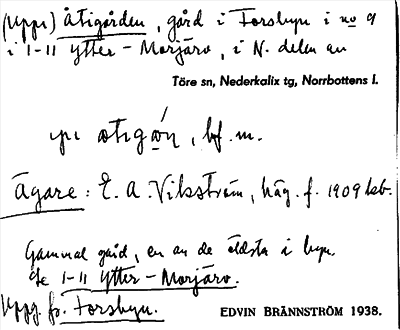 (Uppr) Åtigården, gård i Forsbyn i no 9
i 1-11 Ytter-Morjärv, i N. delen av
Töre sn, Nederkalix tg, Norrbottens l.
bf. m.
Ägare: E. A. Vikström, häg. f. 1909 ibid.
Gammal gård, en av de äldsta i byn.
å 1-11 Ytter-Morjärv.
Uppg. fr. Forsbyn.
EDVIN BRÄNNSTRÖM 1938.